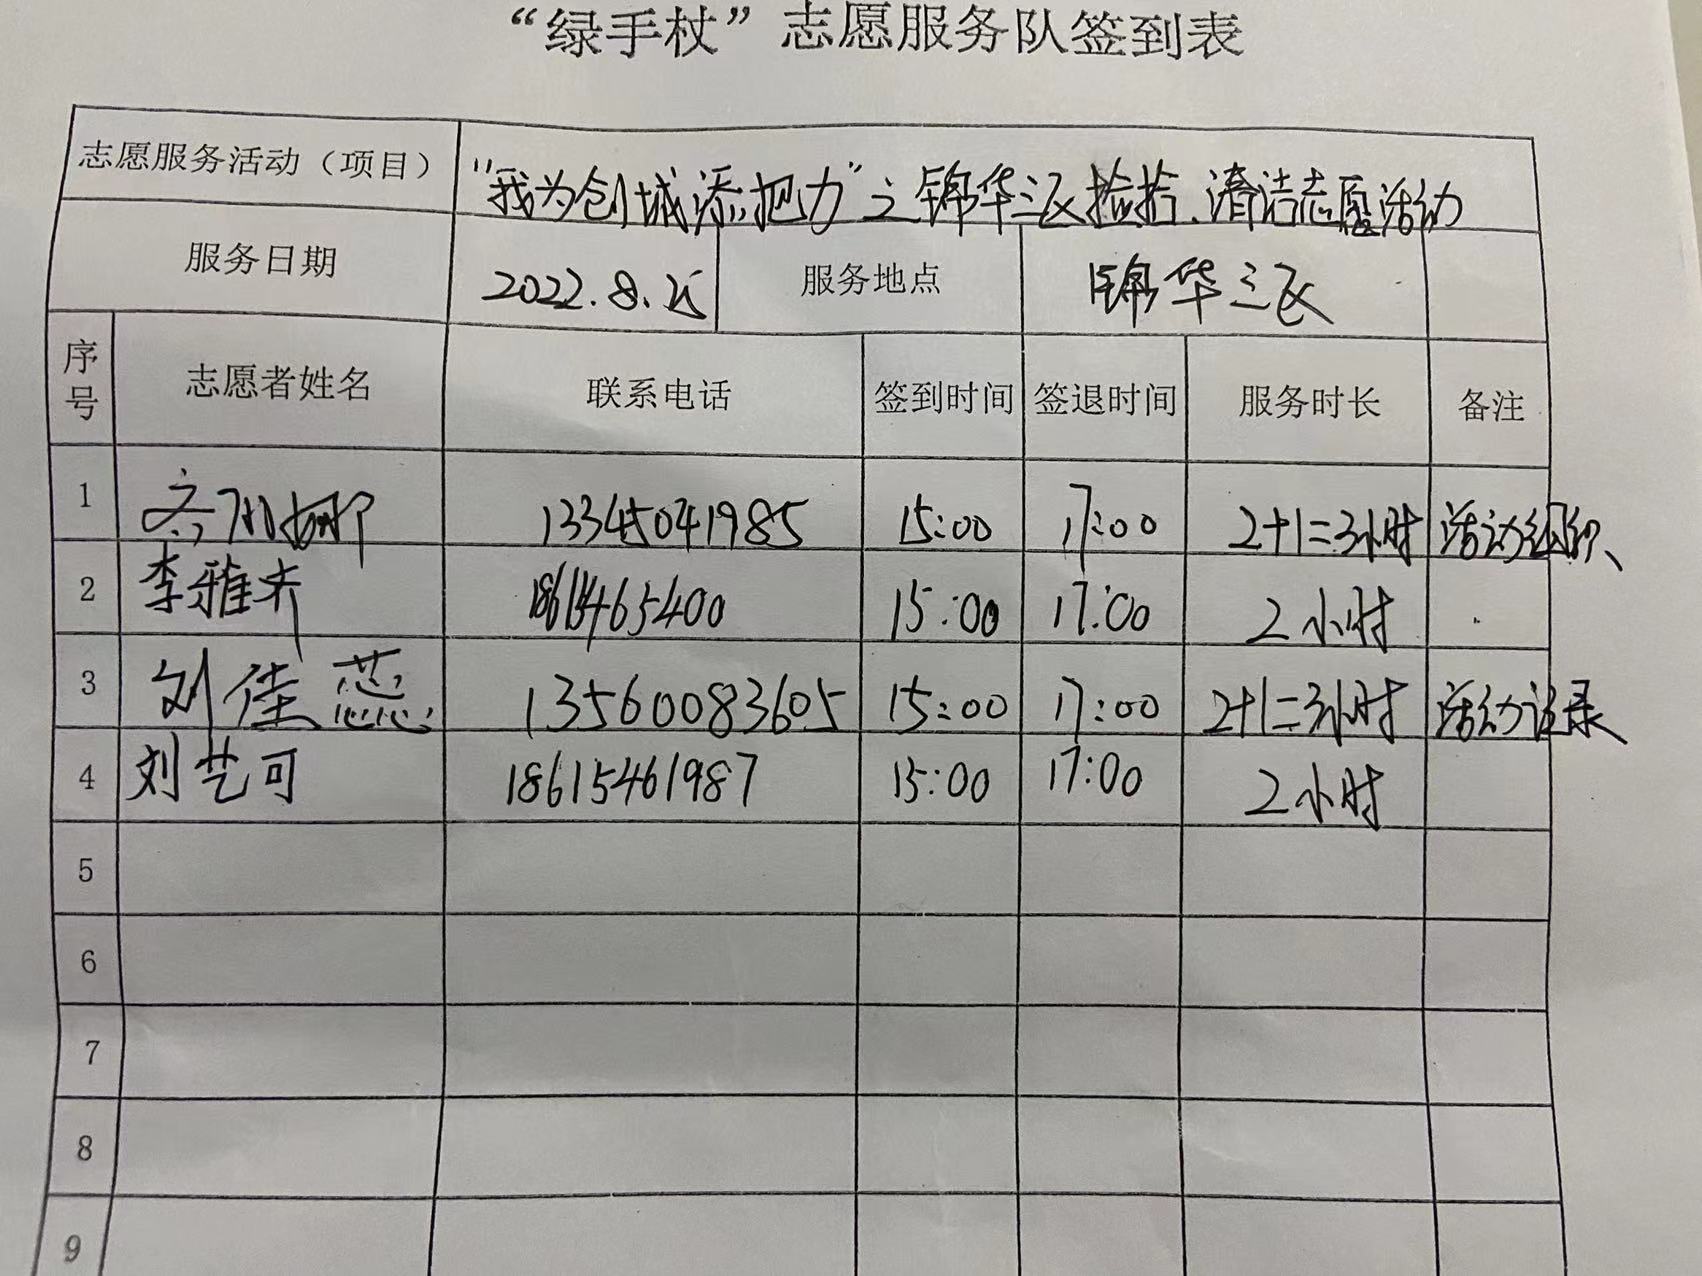 “绿手杖”志愿服务队签到表
志愿服务活动（项目） “我为创城添把力”之锦华三区捡拾、清洁志愿活动
服务日期 2022.8. 服务地点 锦华三区
序号 志愿者姓名 联系电话 签到时间 签退时间 服务时长 备注
1 13345041985 15:00 17:00 2+1=3小时 活动组织、
2 李雅 15:00 17:00 2小时
3 刘佳蕊 13560083605 15:00 17:00 2+1=3小时 活动记录
4 刘艺可 18615461987 15:00 17:00 2小时
5
6
7
8
9